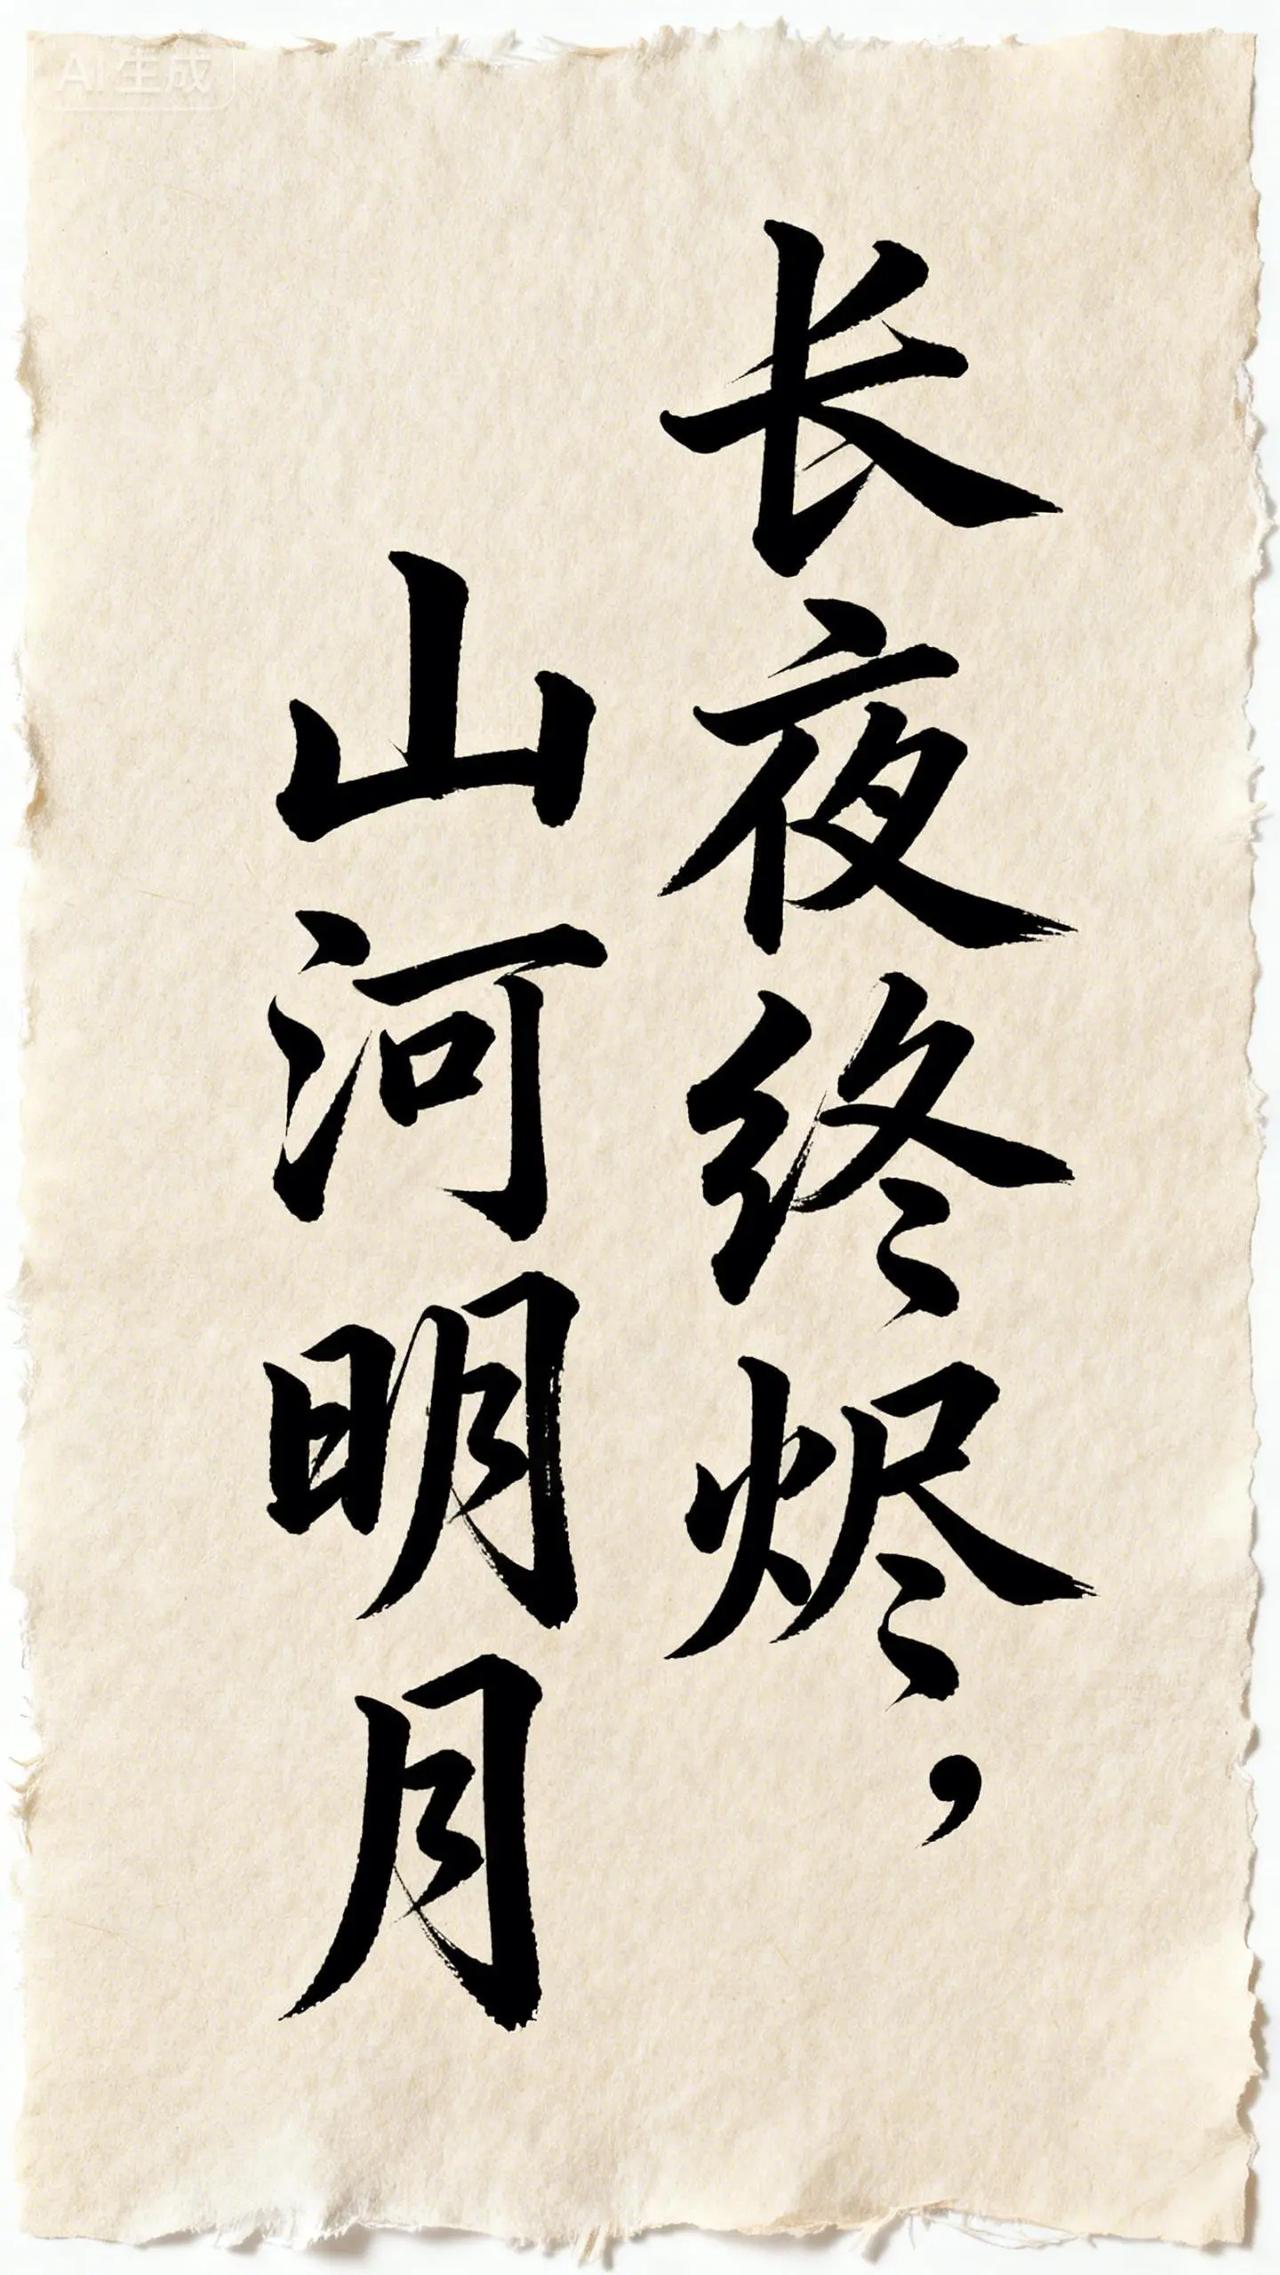 AI生成
长夜终烬，
山河明月